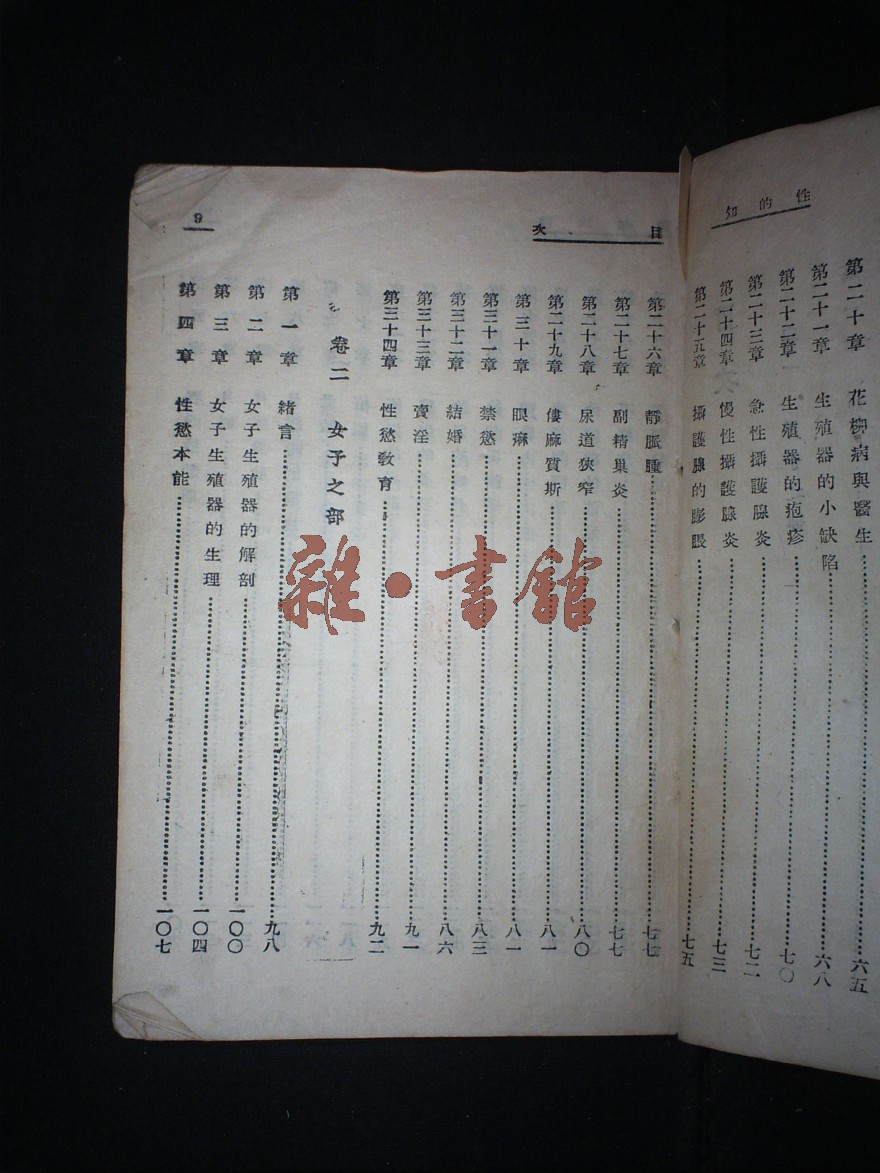 性的知
第二十章 花柳病與醫生 六五
第二十一章 生殖器的小缺陷 六八
第二十二章 生殖器的疱疹 七〇
第二十三章 急性攝護腺炎 七二
第二十四章 慢性攝護腺炎 七三
第二十五章 攝護腺的膨脹 七五
目次
第二十六章 靜脈腫 七七
第二十七章 副精巢炎 七七
第二十八章 尿道狹窄 八〇
第二十九章 僂麻質斯 八一
第三十章 眼淋 八一
第三十一章 禁慾 八三
第三十二章 結婚 八六
第三十三章 賣淫 九一
第三十四章 性慾教育 九二
卷二 女子之部
第一章 緒言 九八
第二章 女子生殖器的解剖 一〇〇
第三章 女子生殖器的生理 一〇四
第四章 性慾本能 一〇七
9
雜·書館